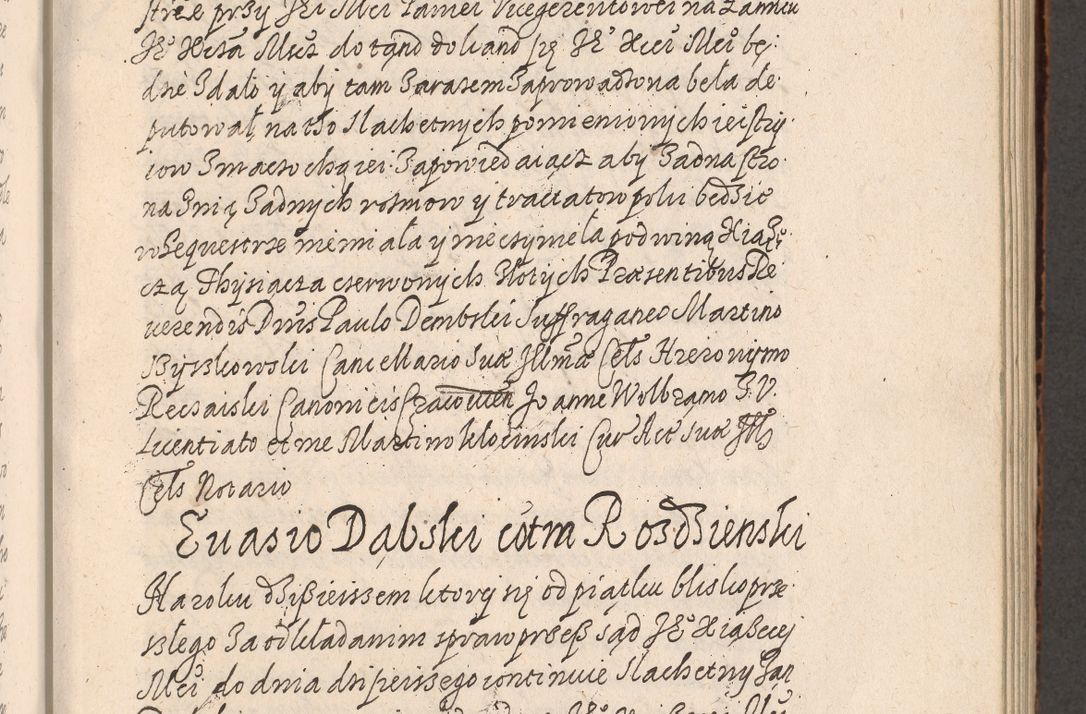 strze przy Jeי Mci Paniei Vicegerentowei na Zamku
Je° Xcza Mści do tąnd dokand się Je° Xcei Mci bę
dzie zdało y aby tam zarazem zaprowadzona beła de
putował na tho slachetnych pomienionych iei stry
iow zmacochą iei zapowiedaiącz aby żadna stro
na znią żadnych rozmow y tractatow poki będzie
w sequestrze niemiała y nieczyniela pod winą Xiąż
czą Thysiącza czerwonych złotych Præsentibus Re
verendis Dnis Paulo Dembski Suffraganeo Martino
Szyszkowski Cancellario Suæ Illmæ Cels Hieronymo
Reczaiski Canonicis Cracovien Joanne Wolbramo J.V.
Licentiato et me Martino Kłocinski Cur Act Suæ Ill
Cels Notario
Evasio Dąbski cotra Rozdzienski
Na roku dzisieissem ktory się od piątku blisko prze
szłego za odkładanim spraw przesz sąd Je° Xiąszęcej
Mci do dnia dzisieiszego continuie slachetny Jan